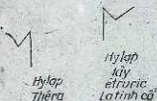 Hylạp
Thêra
Hylạp
kỳ
êtruric
La tinh cổ